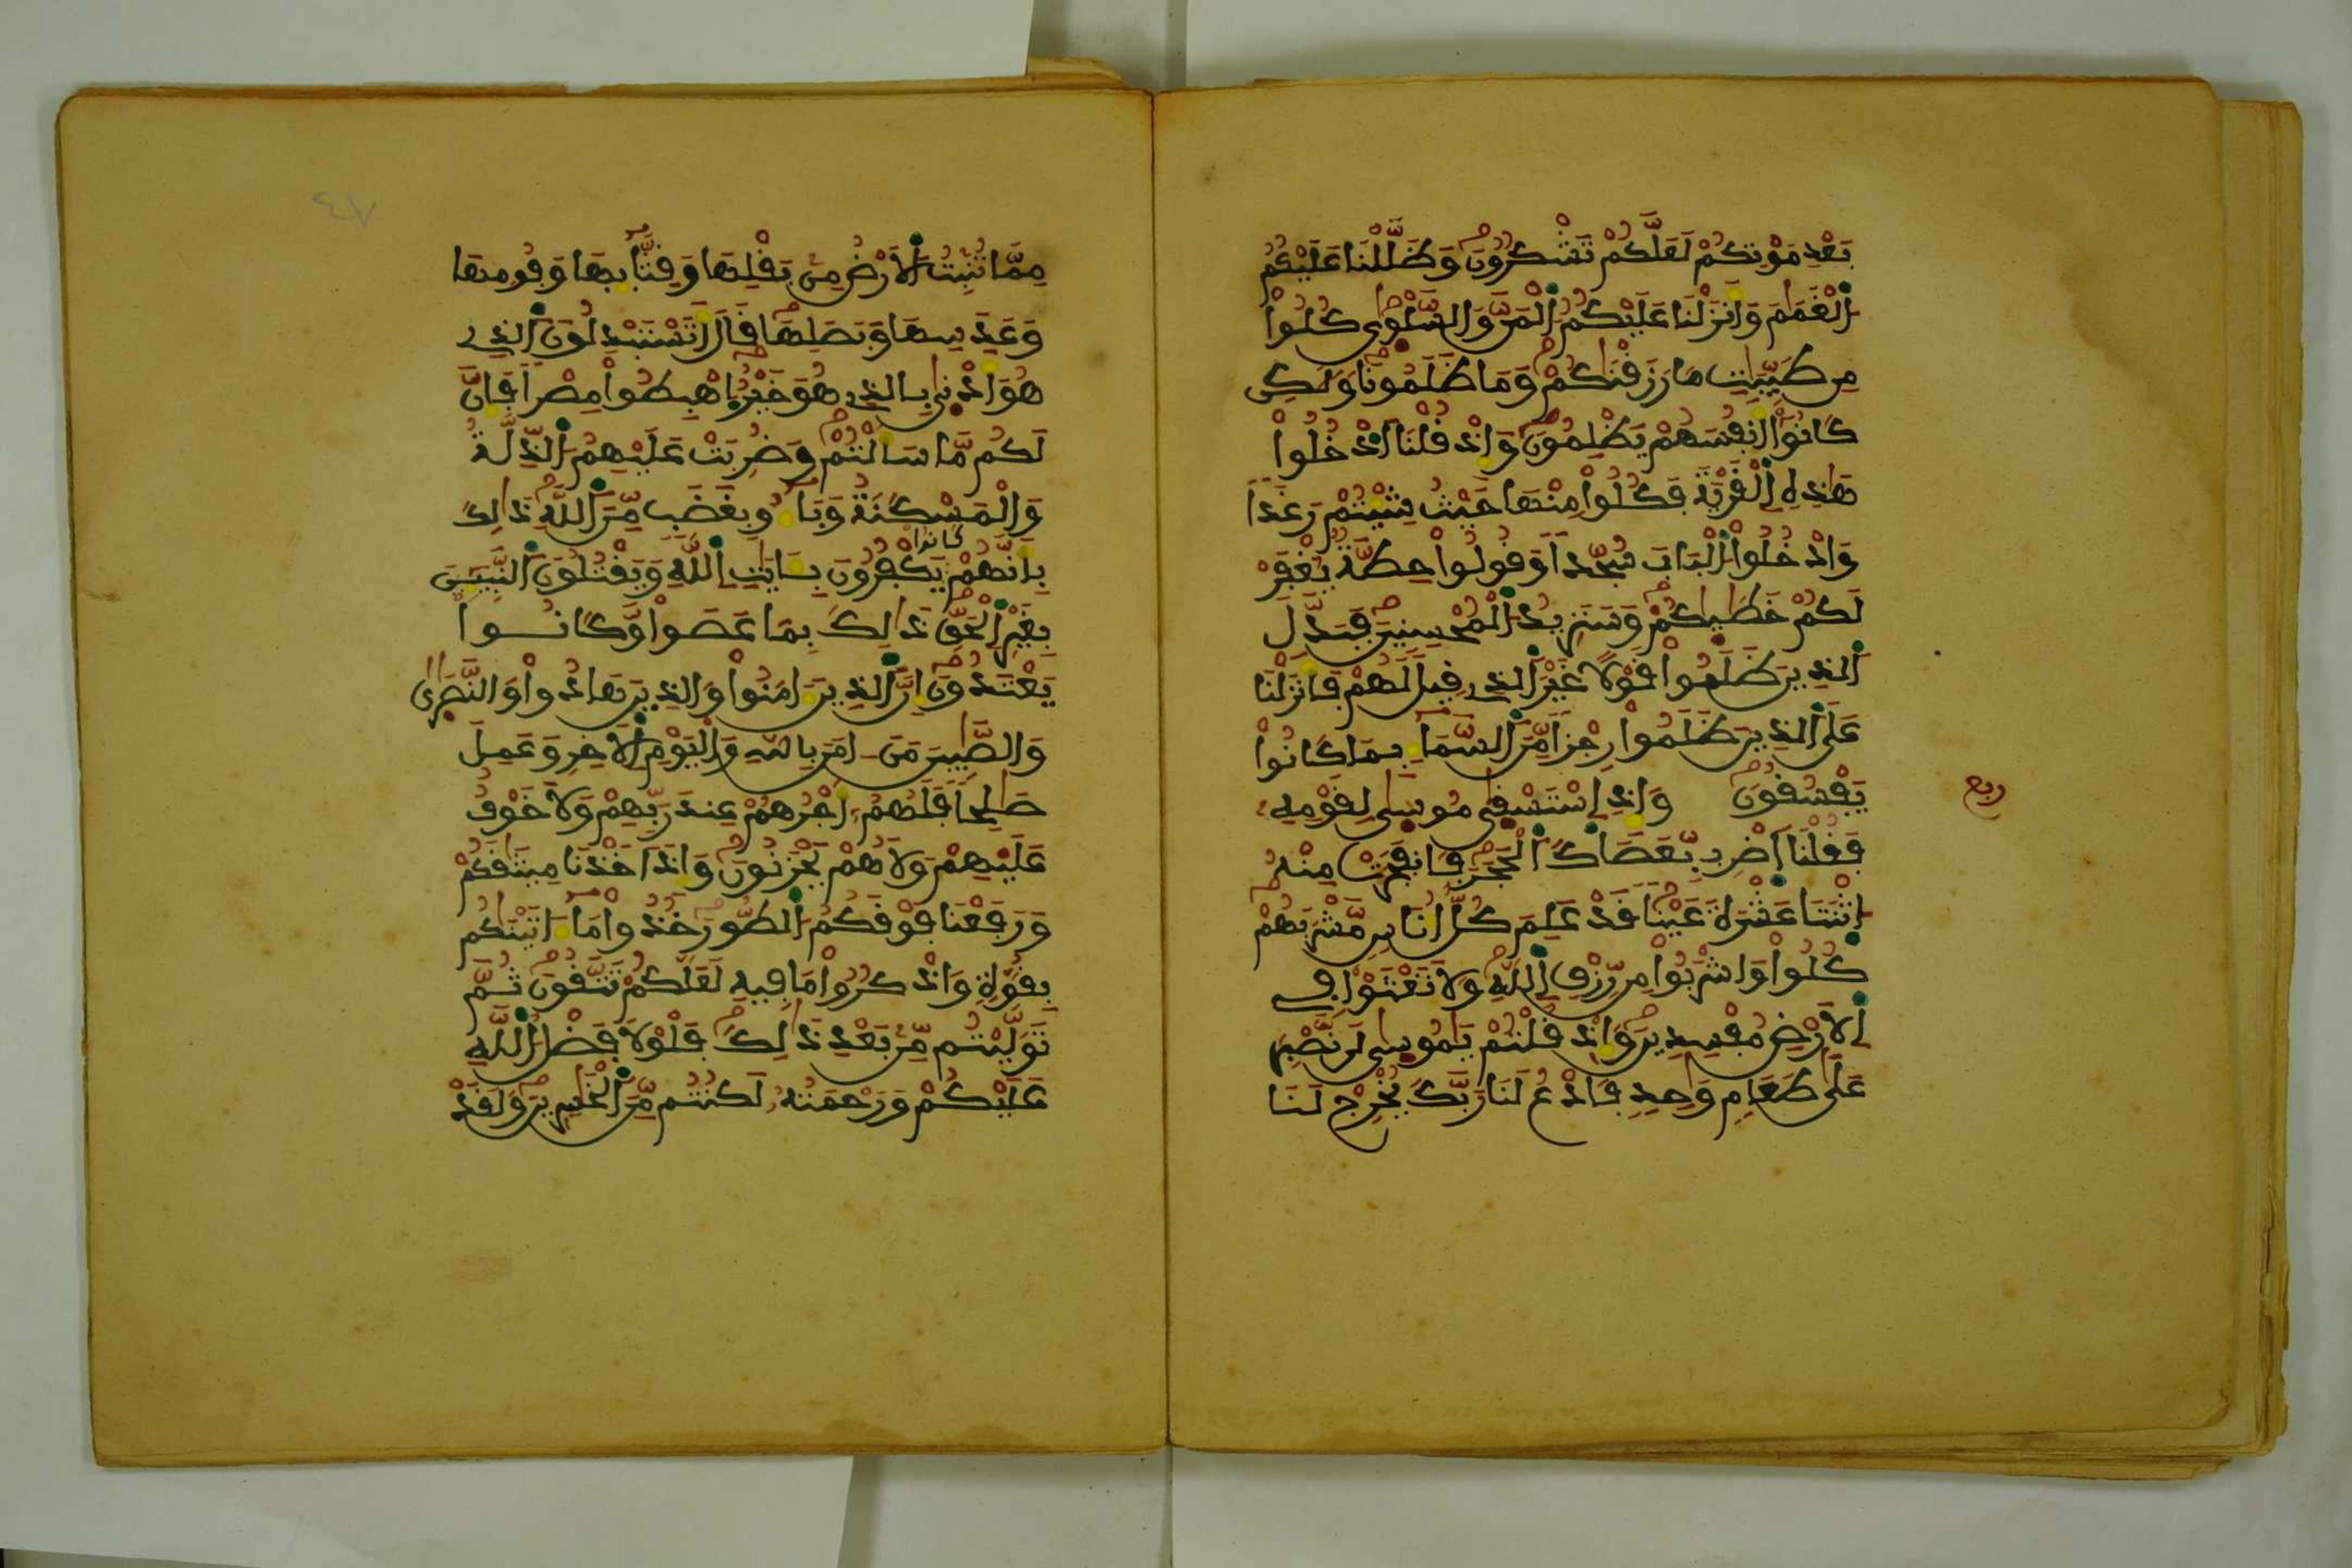 بَعْدِ مَوْتِكُمْ لَعَلَّكُمْ تَشْكُرُونَ وَظَلَّلْنَا عَلَيْكُمُ
اَ۬لْغَمَٰمَ وَأَنزَلْنَا عَلَيْكُمُ اُ۬لْمَنَّ وَالسَّلْوٜىٰ كُلُواْ
مِن طَيِّبَٰتِ مَا رَزَقْنَٰكُمْ وَمَا ظَلَمُونَا وَلَٰكِن
كَانُوٓاْ أَنفُسَهُمْ يَظْلِمُونَ وَإِذْ قُلْنَا اَ۟دْخُلُواْ
هَٰذِهِ اِ۬لْقَرْيَةَ فَكُلُواْ مِنْهَا حَيْثُ شِئْتُمْ رَغَداٗ
وَادْخُلُواْ اُ۬لْبَابَ سُجَّداٗ وَقُولُواْ حِطَّةٞ يُغْفَرْ
لَكُمْ خَطَٰيٰكُمْ وَسَنَزِيدُ اُ۬لْمُحْسِنِينَ فَبَدَّلَ
اَ۬لذِينَ ظَلَمُواْ قَوْلاً غَيْرَ اَ۬لذِے قِيلَ لَهُمْ فَأَنزَلْنَا
عَلَى اَ۬لذِينَ ظَلَمُواْ رِجْزاٗ مِّنَ اَ۬لسَّمَآءِ بِمَا كَانُواْ
يَفْسُقُونَ وَإِذِ اِ۪سْتَسْقٜىٰ مُوسٜىٰ لِقَوْمِهِۦ
فَقُلْنَا اَ۪ضْرِب بِّعَصَاكَ اَ۬لْحَجَرَ فَانفَجَرَتْ مِنْهُ
اُ۪ثْنَتَا عَشْرَةَ عَيْناٗ قَدْ عَلِمَ كُلُّ أُنَاسٖ مَّشْرَبَهُمْ
كُلُواْ وَاشْرَبُواْ مِن رِّزْقِ اِ۬للَّهِ وَلَا تَعْثَوْاْ فِے
اِ۬لَارْضِ مُفْسِدِينَ وَإِذْ قُلْتُمْ يَٰمُوسٜىٰ لَن نَّصْبِرَ
عَلَىٰ طَعَامٖ وَٰحِدٖ فَادْعُ لَنَا رَبَّكَ يُخْرِجْ لَنَا
ربع
٤٧
مِمَّا تُنۢبِتُ اُ۬لَارْضُ مِنۢ بَقْلِهَا وَقِثَّآئِهَا وَفُومِهَا
وَعَدَسِهَا وَبَصَلِهَا قَالَ أَتَسْتَبْدِلُونَ اَ۬لذِے
هُوَ أَدْنٜىٰ بِالذِے هُوَ خَيْرٌ اِ۪هْبِطُواْ مِصْراٗ فَإِنَّ
لَكُم مَّا سَأَلْتُمْ وَضُرِبَتْ عَلَيْهِمُ اُ۬لذِّلَّةُ
وَالْمَسْكَنَةُ وَبَآءُو بِغَضَبٖ مِّنَ اَ۬للَّهِ ذَٰلِكَ
بِأَنَّهُمْ كانوا يَكْفُرُونَ بِـَٔايَٰتِ اِ۬للَّهِ وَيَقْتُلُونَ اَ۬لنَّبِيٓـِٕۧنَ
بِغَيْرِ اِ۬لْحَقِّ ذَٰلِكَ بِمَا عَصَواْ وَّكَانُواْ
يَعْتَدُونَ إِنَّ اَ۬لذِينَ ءَامَنُواْ وَالذِينَ هَادُواْ وَالنَّصَٰرٜىٰ
وَالصَّٰبِينَ مَنَ اٰمَنَ بِاللَّهِ وَالْيَوْمِ اِ۬لَاخِرِ وَعَمِلَ
صَٰلِحاٗ فَلَهُمُۥٓ أَجْرُهُمْ عِندَ رَبِّهِمْ وَلَا خَوْفٌ
عَلَيْهِمْ وَلَا هُمْ يَحْزَنُونَ وَإِذَ اَخَذْنَا مِيثَٰقَكُمْ
وَرَفَعْنَا فَوْقَكُمُ اُ۬لطُّورَ خُذُواْ مَآ ءَاتَيْنَٰكُم
بِقُوَّةٖ وَاذْكُرُواْ مَا فِيهِ لَعَلَّكُمْ تَتَّقُونَ ثُمَّ
تَوَلَّيْتُم مِّنۢ بَعْدِ ذَٰلِكَ فَلَوْلَا فَضْلُ اُ۬للَّهِ
عَلَيْكُمْ وَرَحْمَتُهُۥ لَكُنتُم مِّنَ اَ۬لْخَٰسِرِينَ وَلَقَدْ